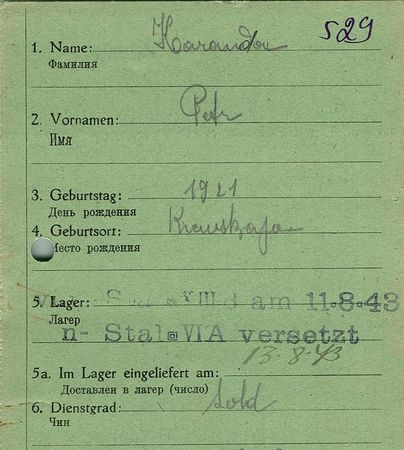 529
1. Name: Karandа
Фамилия
2. Vornamen: Petr
Имя
3. Geburtstag: 1921
День рождения
4. Geburtsort:
Место рождения
5. Lager: am 11.8.43
Лагер
n- Stal VIA versetzt
13.8.43
5a. Im Lager eingeliefert am:
Доставлен в лагер (число)
6. Dienstgrad: Sold
Чин